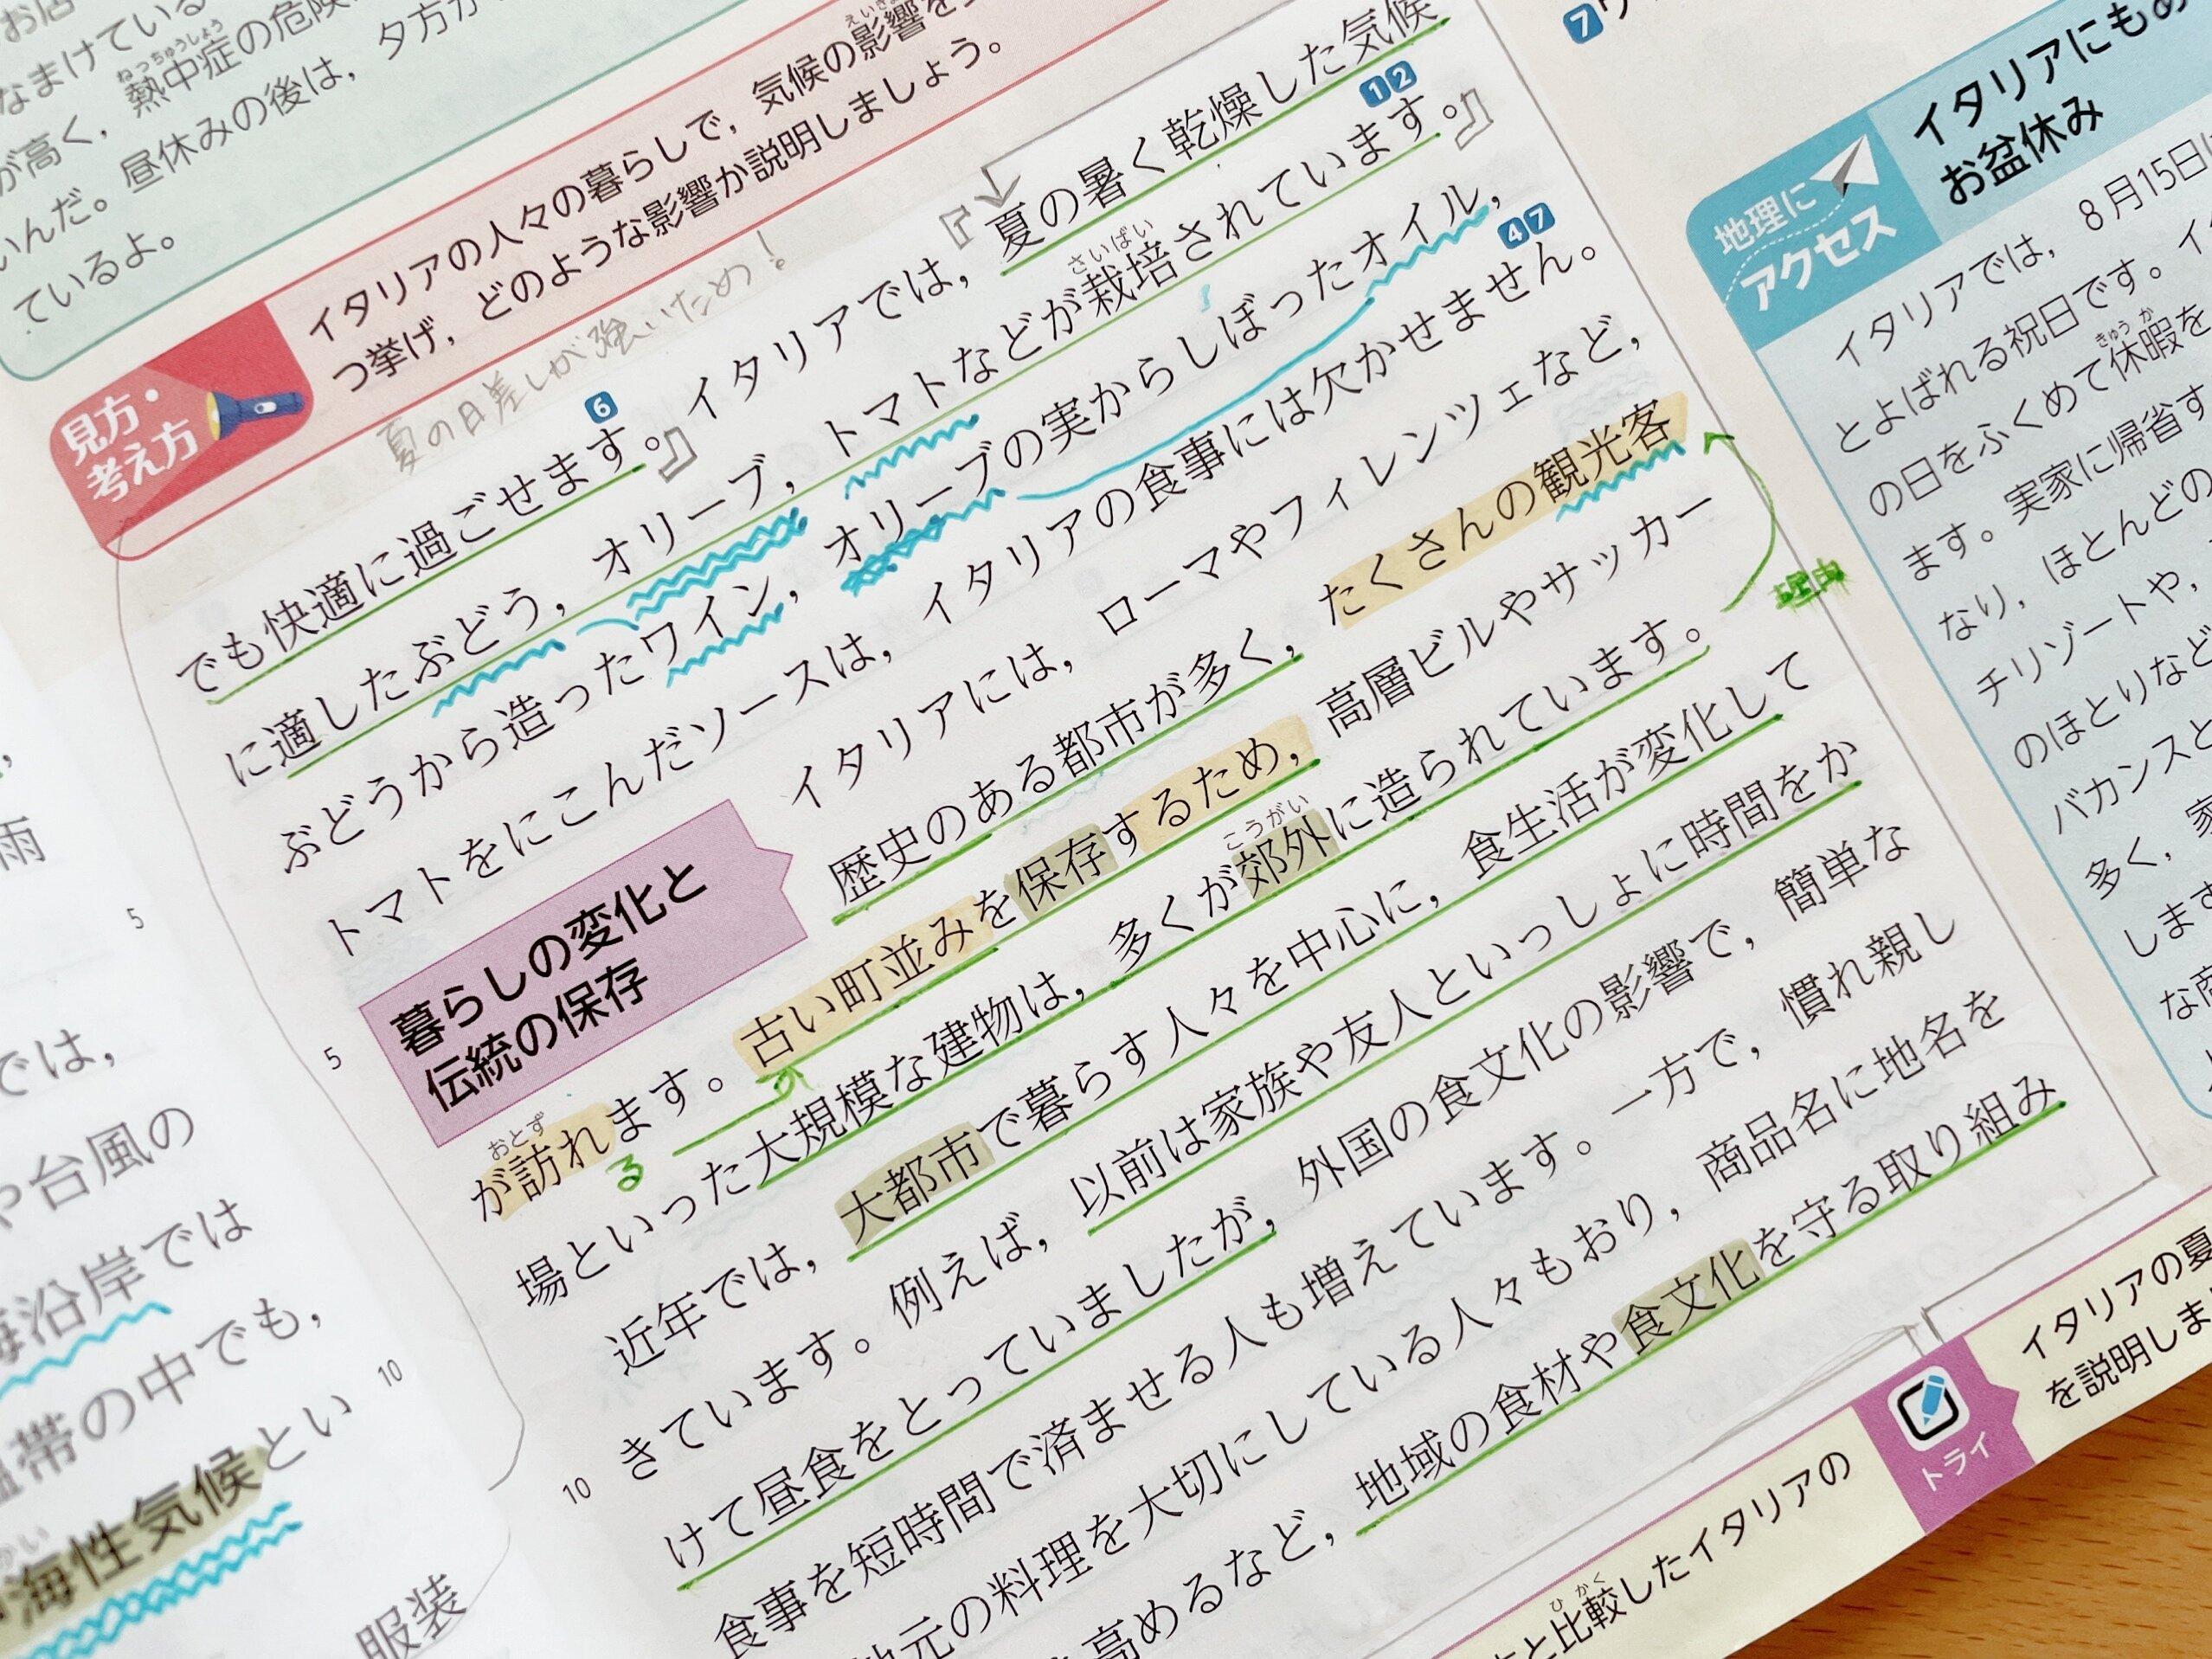 お店
なまけている
ねっちゅうしょう
が高く，熱中症の危険
いんだ。昼休みの後は，夕方か
ているよ。
見方・
考え方
イタリアの人々の暮らしで，気候の影響を
つ挙げ，どのような影響か説明しましょう。
夏の日差しが強いため！
6
でも快適に過ごせます。イタリアでは，夏の暑く乾燥した気候
1 2
さいばい
に適したぶどう，オリーブ，トマトなどが栽培されています。
ぶどうから造ったワイン，オリーブの実からしぼったオイル，
4 7
トマトをにこんだソースは，イタリアの食事には欠かせません。
暮らしの変化と
伝統の保存
イタリアには，ローマやフィレンツェなど，
5
歴史のある都市が多く，たくさんの観光客
おとず
が訪れます。古い町並みを保存するため，高層ビルやサッカー
る
理由
こうがい
場といった大規模な建物は，多くが郊外に造られています。
近年では，大都市で暮らす人々を中心に，食生活が変化して
きています。例えば，以前は家族や友人といっしょに時間をか
10
けて昼食をとっていましたが，外国の食文化の影響で，簡単な
食事を短時間で済ませる人も増えています。一方で，慣れ親し
地元の料理を大切にしている人々もおり，商品名に地名を
高めるなど，地域の食材や食文化を守る取り組み
7
地理に
アクセス
イタリアにも
お盆休み
イタリアでは，8月15日
とよばれる祝日です。イ
きゅうか
の日をふくめて休暇を
ます。実家に帰省す
なり，ほとんどの
チリゾートや，
のほとりなど
バカンスと
多く，家
します
な商
トライ
イタリアの夏
を説明しま
ひかく
と比較したイタリアの
雨
5
では，
や台風の
海沿岸では
温帯の中でも，
10
海性気候とい
服装